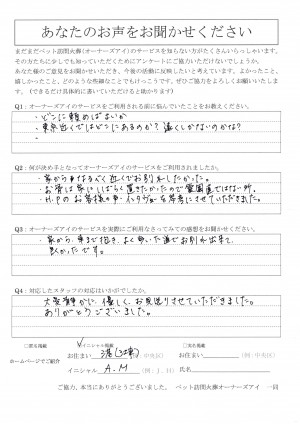 あなたのお声をお聞かせください
まだまだペット訪問火葬(オーナーズアイ)のサービスを知らない方がたくさんいらっしゃいます。
その方たちに少しでも知っていただくためにアンケートにご協力いただけないでしょうか。
あなた様のご意見をお聞かせいただき、今後の活動に反映したいと考えています。よかったこと、
嬉しかったこと、どのような些細なことでもけっこうです。ぜひご協力をよろしくお願いいたします。
(できるだけ具体的に書いていただけると助かります)
Q1:オーナーズアイのサービスをご利用される前に悩んでいたことをお教えください。
・どこに頼めばよいか
・東京近くではどこにあるのか? 遠くしかないのかな?
Q2:何が決め手となってオーナーズアイのサービスをご利用されましたか。
・家からなるべく近くでお別れしたかった。
・お骨は家にしばらく置きたかったので霊園ではない所。
・H.Pのお客様の声を参考にさせていただきました。
Q3:オーナーズアイのサービスを実際にご利用なさってみての感想をお聞かせください。
・家から、車まで抱き、よく歩いた道でお別れ出来て、
良かったです。
Q4:対応したスタッフの対応はいかがでしたか。
大変静かに、優しく、お見送りさせていただきました。
ありがとうございました。
□匿名掲載 イニシャル掲載 □実名掲載
ホームページでご紹介
お住まい 港 (中央区) お住まい (例:中央区)
イニシャル A.M (例:J.H) 氏名
ご協力、本当にありがとうございました。 ペット訪問火葬オーナーズアイ 一同